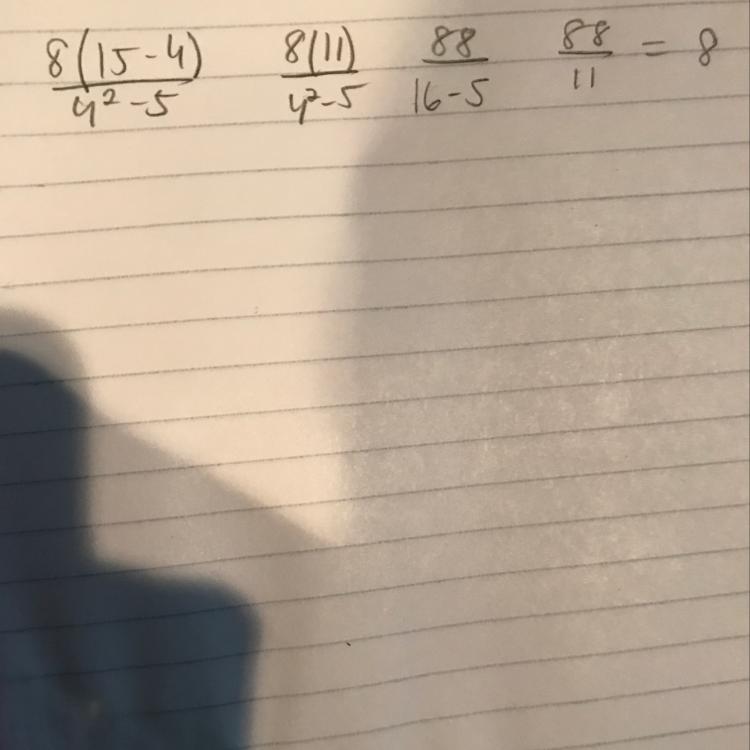 8(15-4)/4²-5 8(11)/4²-5 88/16-5 88/11 = 8